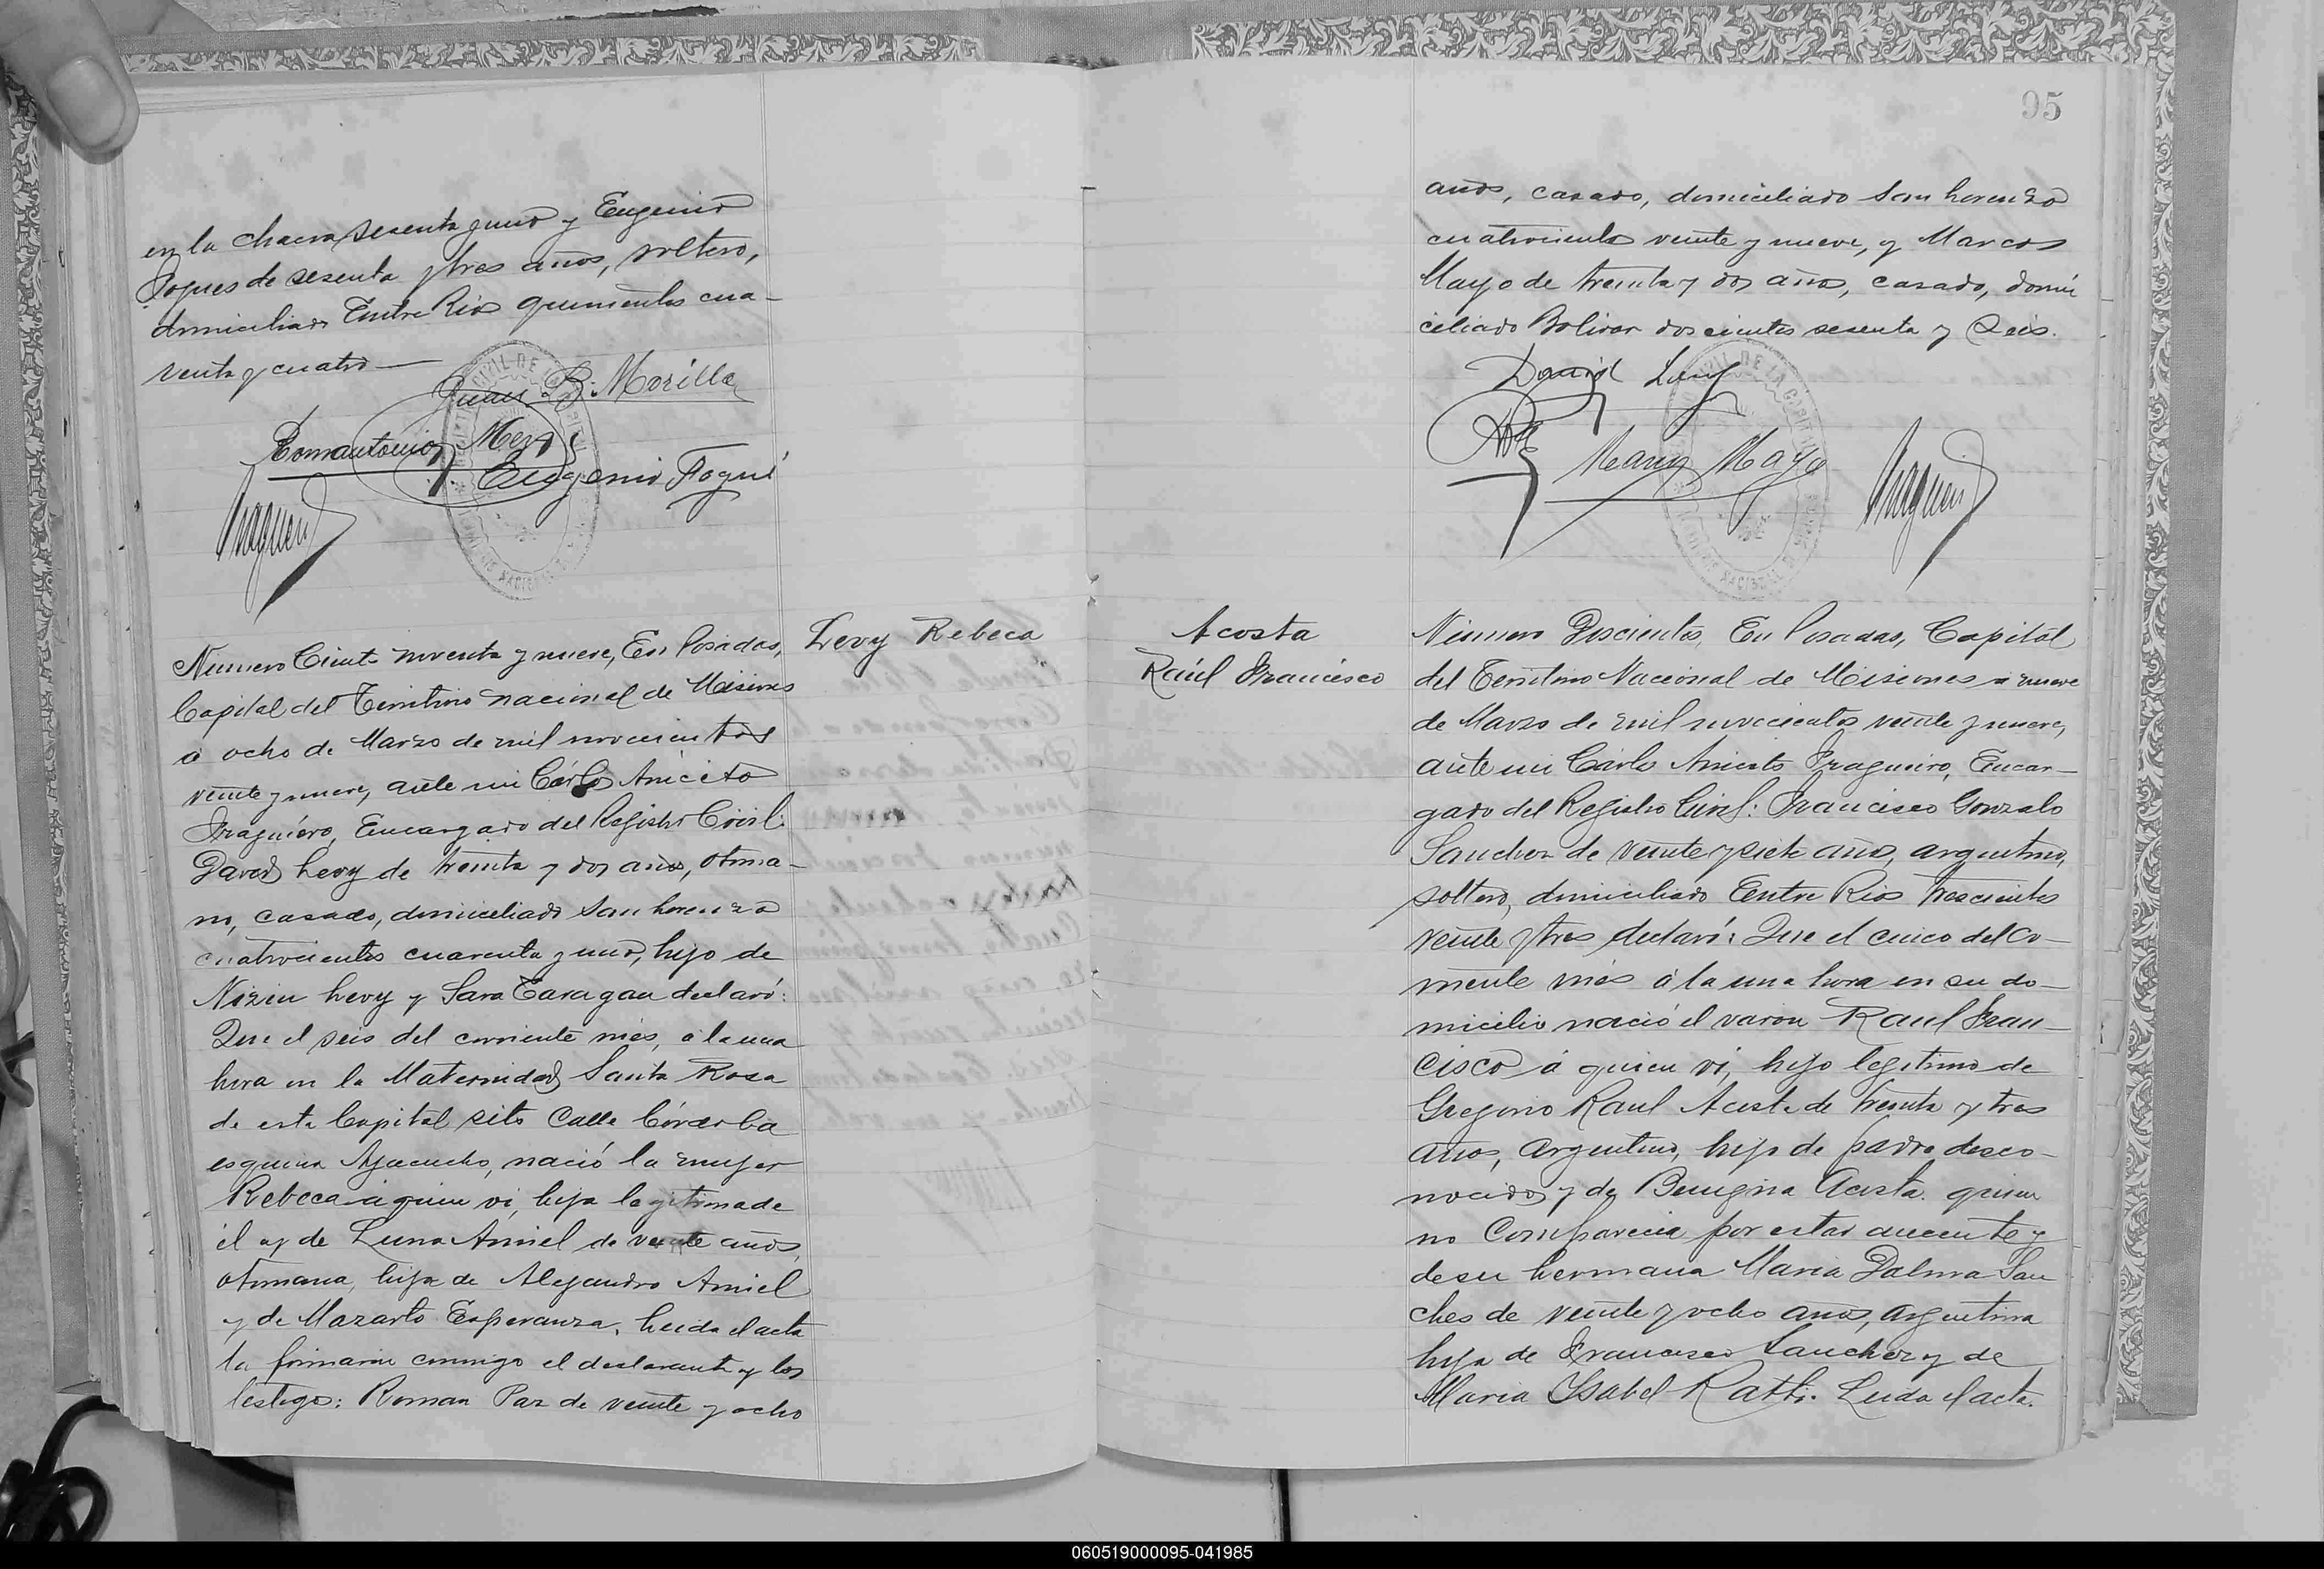 en la chacra sesenta y uno y Eugenio
Fogues de sesenta y tres años, soltero,
domiciliado Entre Rios quinientos cua-
renta y cuatro —
Juan B. Morilla
Meza
Eugenio Fogué
Numero Ciento noventa y nueve, En Posadas,
Capital del Territorio nacional de Misiones
a ocho de Marzo de mil novecientos
veinte y nueve, ante mi Cárlos Aniceto
Fragueiro, Encargado del Registro Civil:
David Levy de treinta y dos años, otoma-
no, casado, domiciliado San Lorenzo
cuatrocientos cuarenta y uno, hijo de
Nizin Levy y Sara Taragan declaró:
Que el seis del corriente més, a la una
hora en la Maternidad Santa Rosa
de esta Capital sito Calle Córdoba
esquina Ayacucho, nació la mujer
Rebeca a quien vi, hija legitima de
él y de Luna Amiel de veinte años,
otomana, hija de Alejandro Amiel
y de Mazarto Esperanza. Leida el acta
la firmaron conmigo el declarante y los
testigos: Roman Paz de veinte y ocho
Levy Rebeca
95
años, casado, domiciliado San Lorenzo
cuatrocientos veinte y nueve, y Marcos
Mayo de treinta y dos años, casado, domi
ciliado Bolivar doscientos sesenta y seis.
David Levy
Marcos Mayo
Acosta
Raúl Francisco
Número Doscientos, En Posadas, Capital
del Territorio Nacional de Misiones a nueve
de Marzo de mil novecientos veinte y nueve,
ante mi Cárlos Aniceto Fragueiro, Encar-
gado del Registro Civil: Francisco Gonzalo
Sanchez de veinte y siete años, argentino,
soltero, domiciliado Entre Rios trescientos
veinte y tres declaró: Que el cinco del co-
rriente més á la una hora en su do-
micilio nació el varon Raul Fran-
cisco á quien vi, hijo legitimo de
Gregorio Raul Acosta de treinta y tres
años, Argentino, hijo de padre desco-
nocido y de Benigna Acosta. quien
no Comparecia por estar aucente y
de su hermana Maria Dalma San
ches de veinte y ocho años, Argentina
hija de Francisco Sanchez y de
Maria Ysabel Ratti. Leida el acta.
060519000095-041985